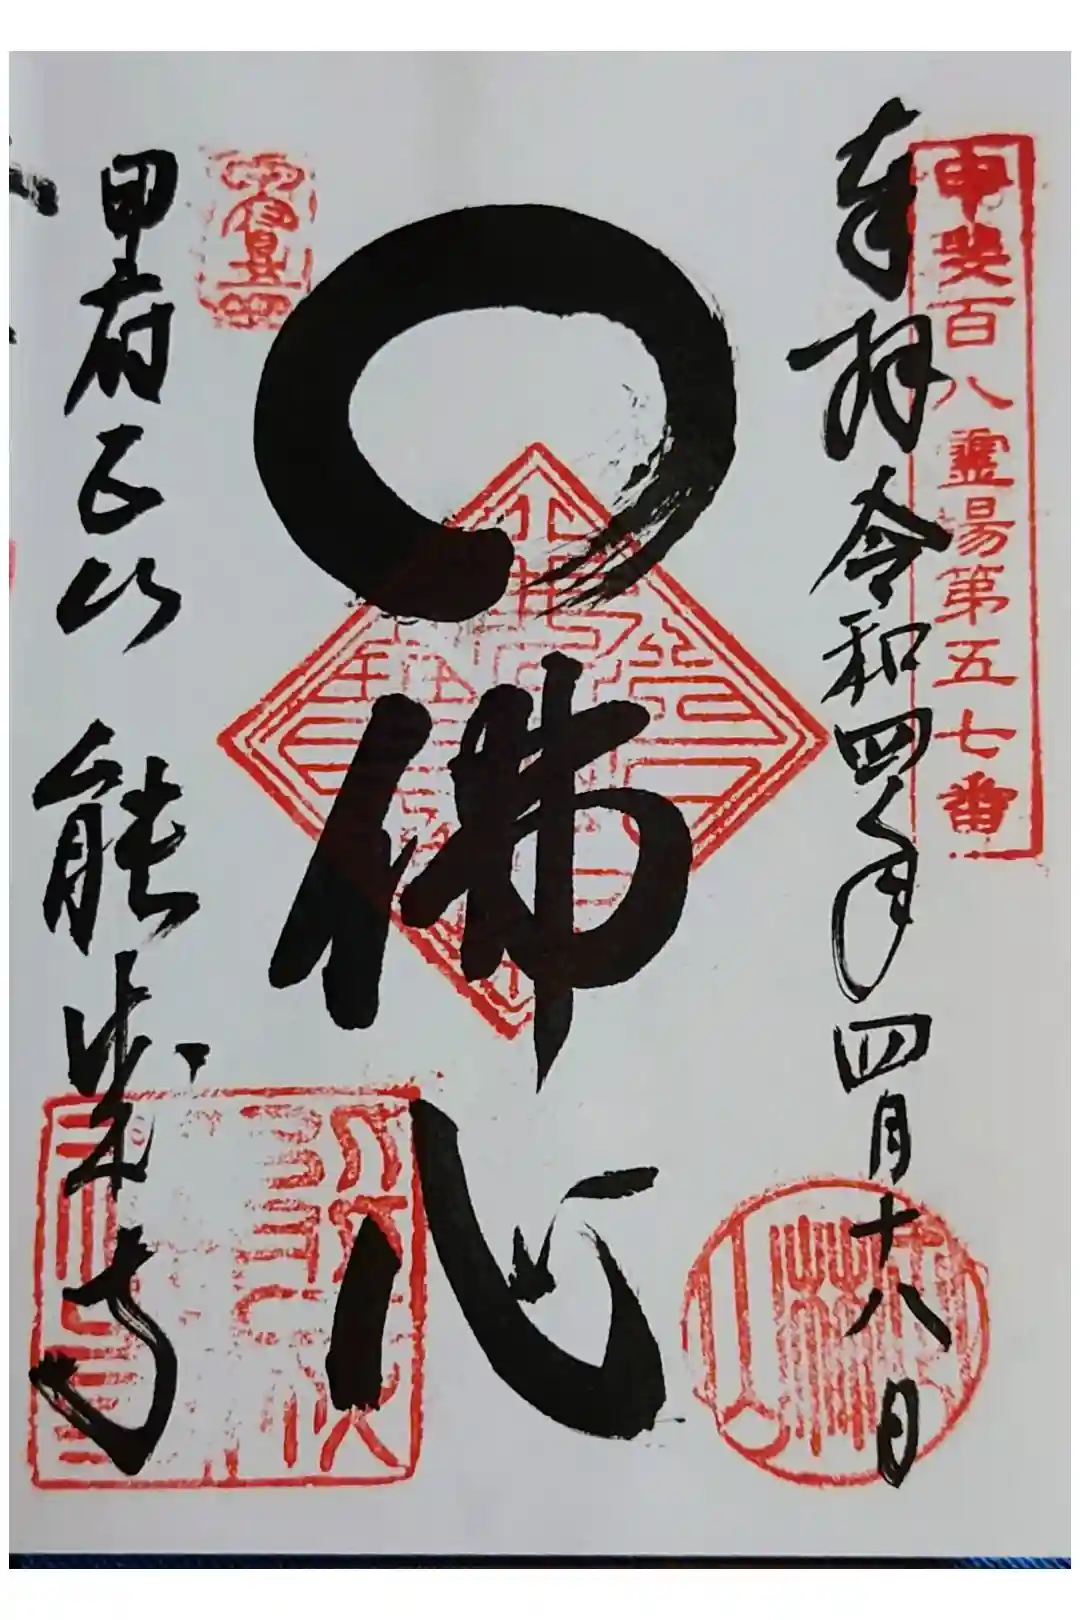 甲斐百八霊場第五七番
奉拝 令和四年 四月十八日
佛心
甲府五山 能成寺